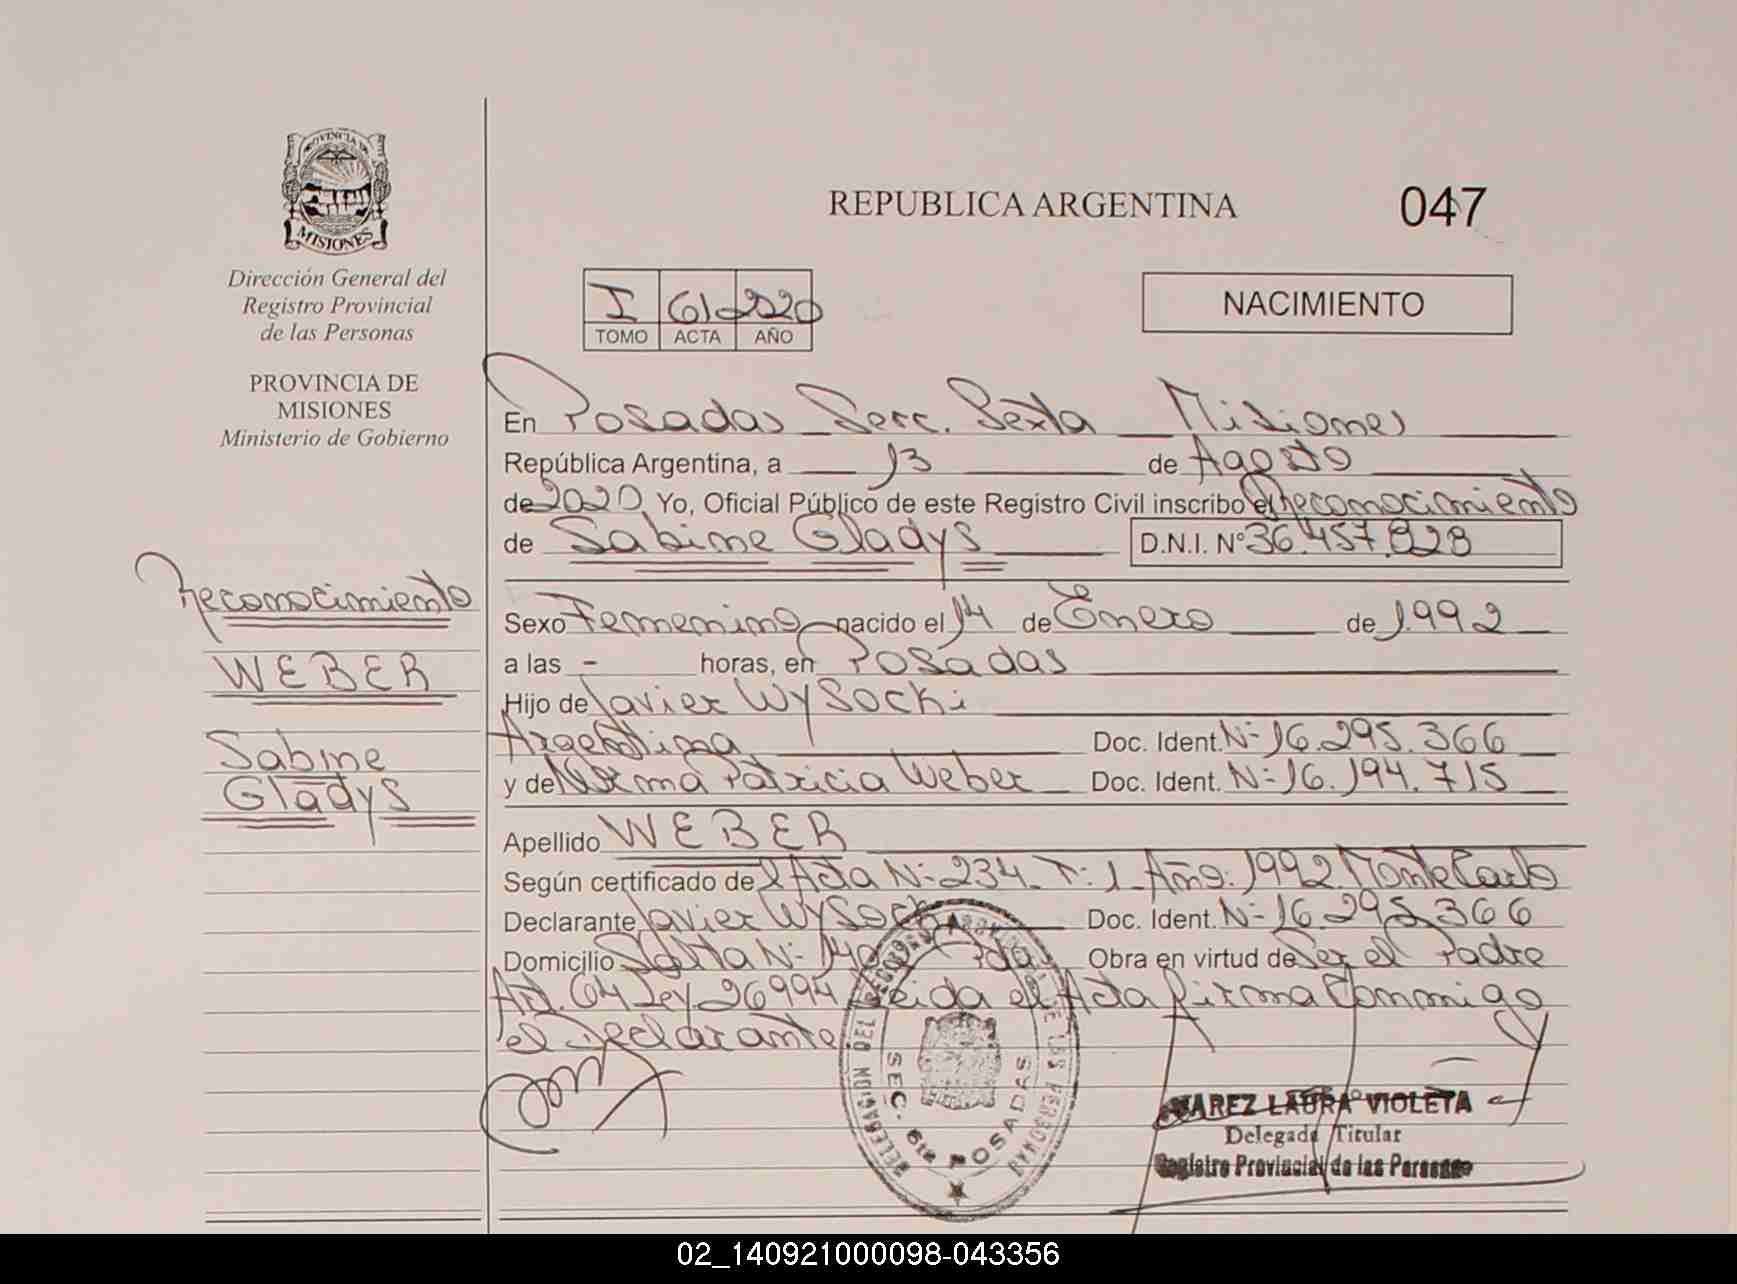 PROVINCIA DE
MISIONES
Dirección General del
Registro Provincial
de las Personas
PROVINCIA DE
MISIONES
Ministerio de Gobierno
Reconocimiento
WEBER
Sabine
Gladys
REPUBLICA ARGENTINA
047
I 61 2020
TOMO ACTA AÑO
NACIMIENTO
En Posadas Secc. Sexta Misiones
República Argentina, a 13 de Agosto
de 2020 Yo, Oficial Público de este Registro Civil inscribo el Reconocimiento
de Sabine Gladys D.N.I. N° 36.457.828
Sexo Femenino nacido el 14 de Enero de 1992
a las - horas, en Posadas
Hijo de Javier WySocki
Argentina Doc. Ident. N- 16.295.366
y de Norma Patricia Weber Doc. Ident. N- 16.194.715
Apellido WEBER
Según certificado de Acta N- 234 T: 1 Año: 1992 MonteCarlo
Declarante Javier WySocki Doc. Ident. N- 16.295.366
Domicilio Salta N- Pdas Obra en virtud de Ser el Padre
Art. 64 Ley 26994 Leida el Acta firma Conmigo
el Declarante
DELEGACION DEL REGISTRO PROVINCIAL DE LAS PERSONAS
SEC. 6ta POSADAS
JUAREZ LAURA VIOLETA
Delegada Titular
Registro Provincial de las Personas
02_140921000098-043356